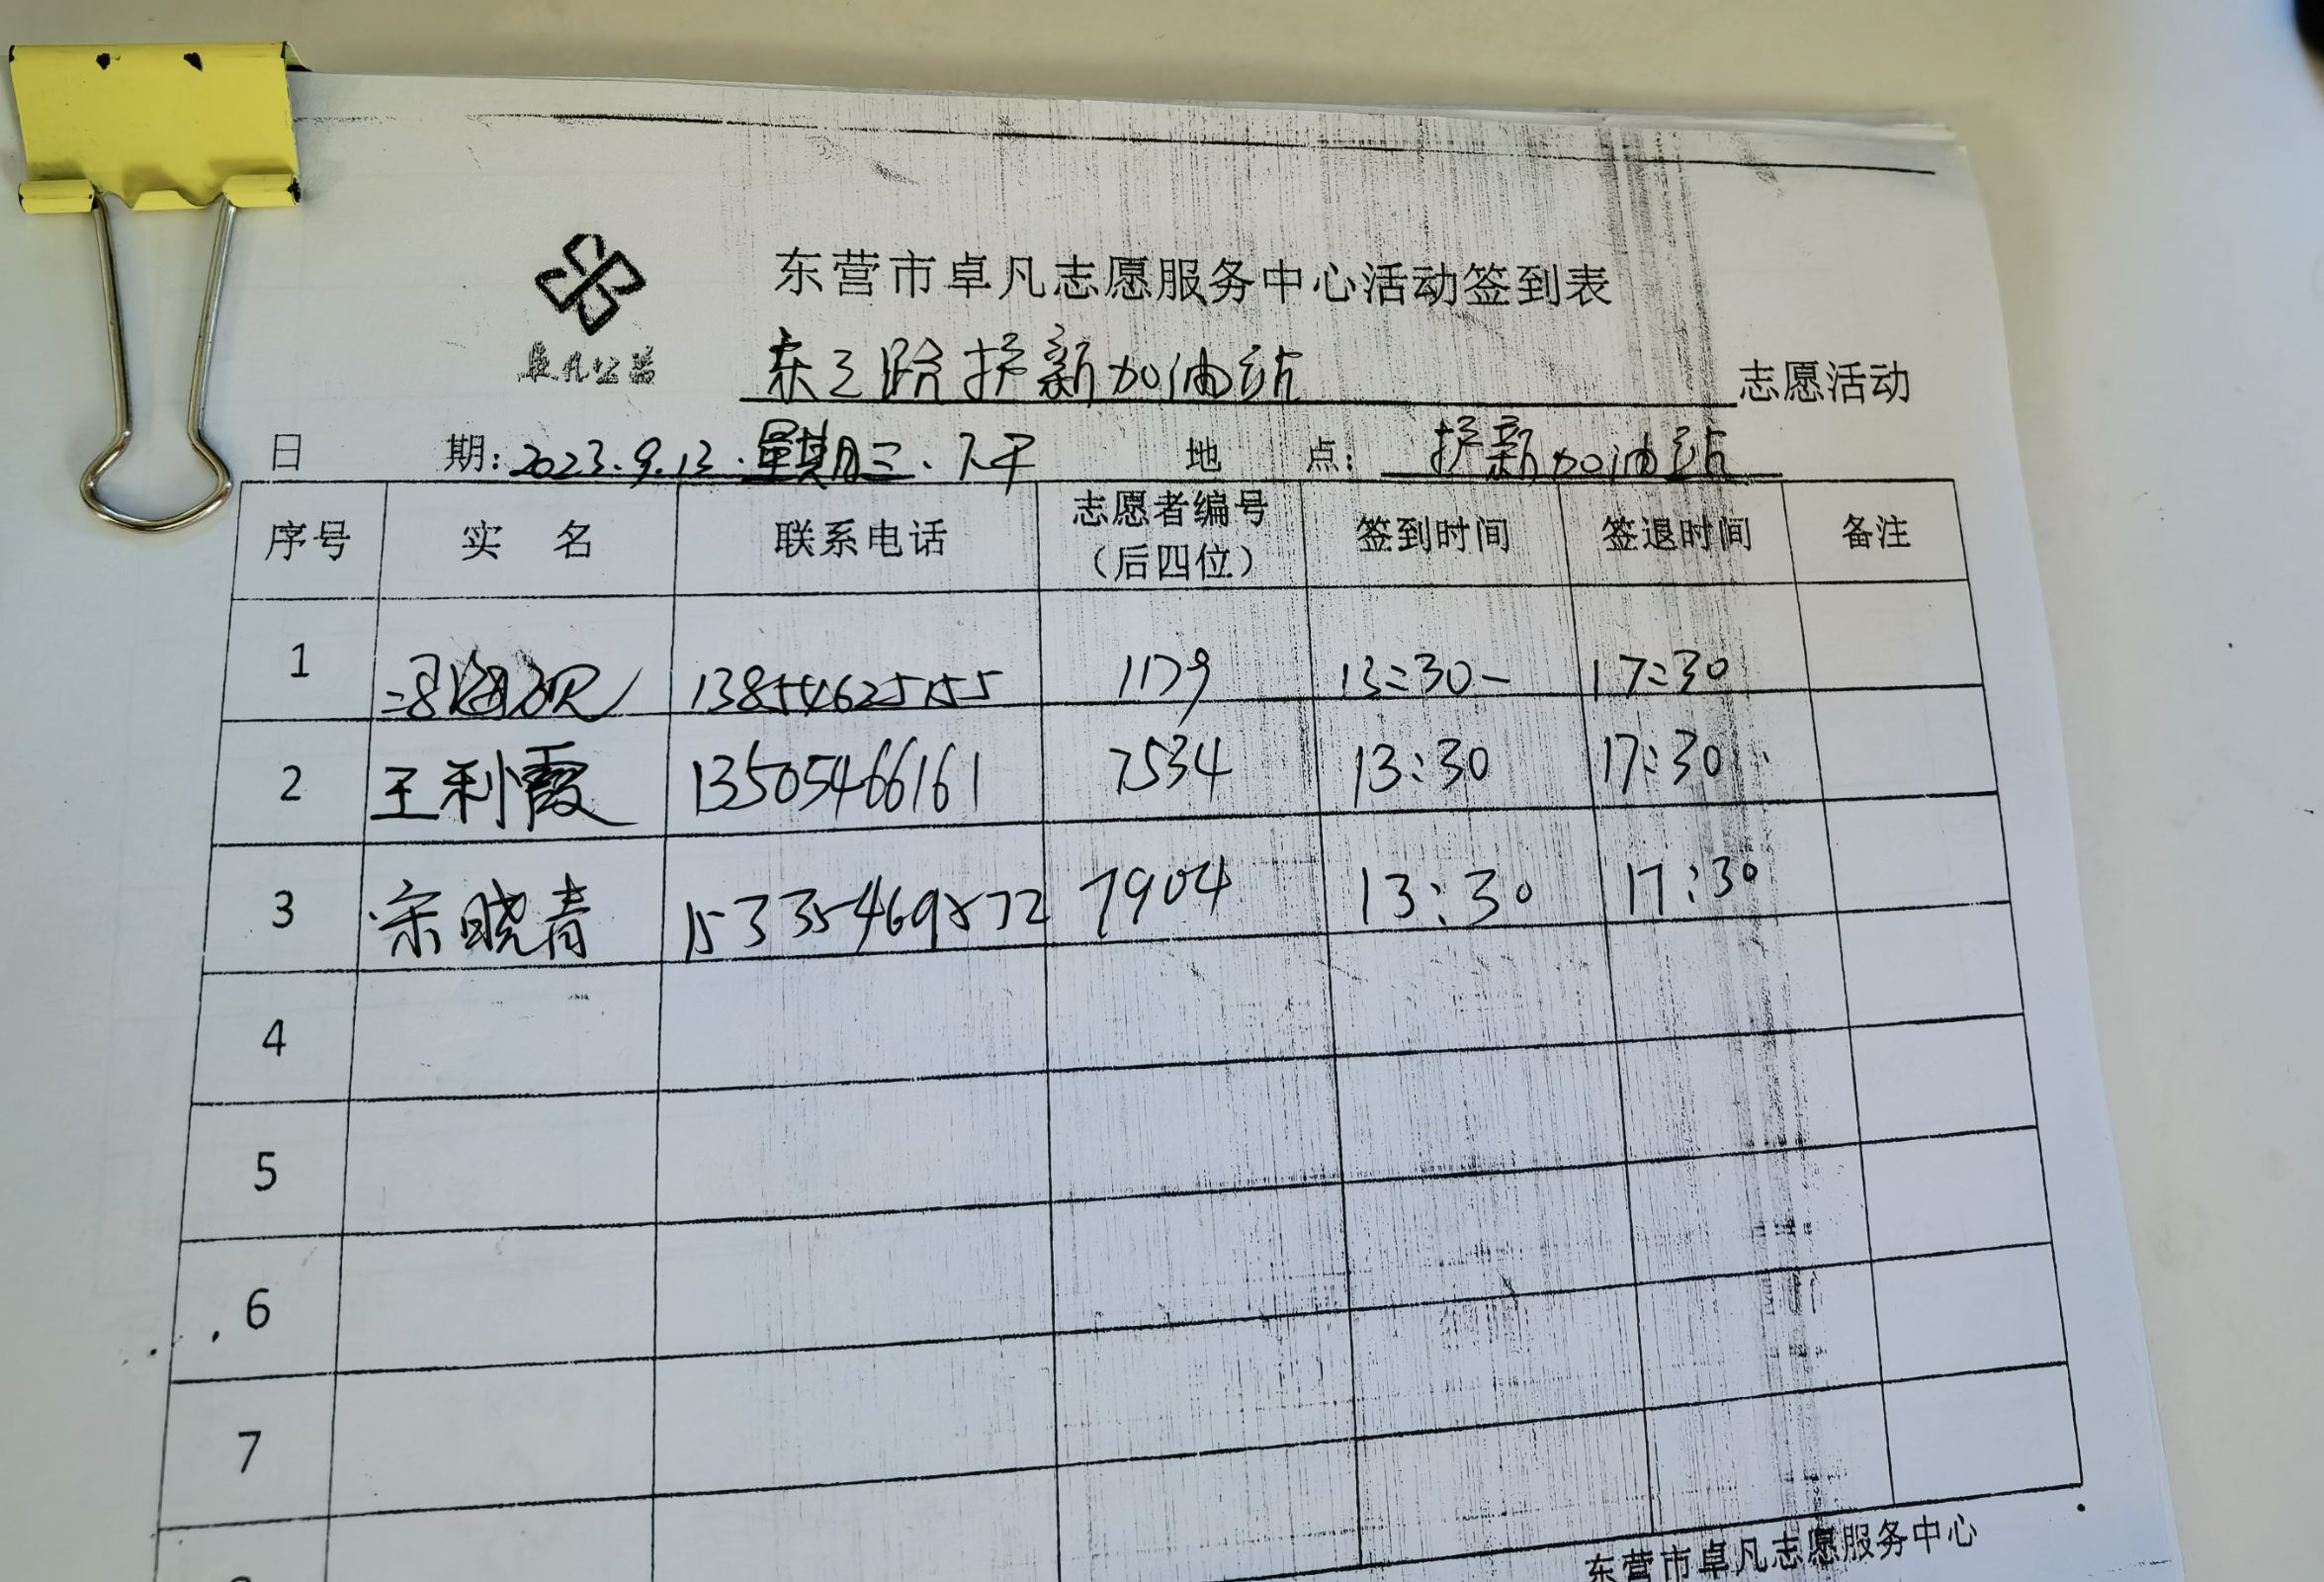 东营市卓凡志愿服务中心活动签到表
卓凡公益
东三路护新加油站 志愿活动
日 期: 2023.9.13.星期三、下午 地 点: 护新加油站
序号 实 名 联系电话 志愿者编号（后四位） 签到时间 签退时间 备注
1 13854625155 1179 13:30- 17:30
2 王利霞 13505466161 7534 13:30 17:30
3 宋晓青 15335469872 7904 13:30 17:30
4
5
6
7
东营市卓凡志愿服务中心